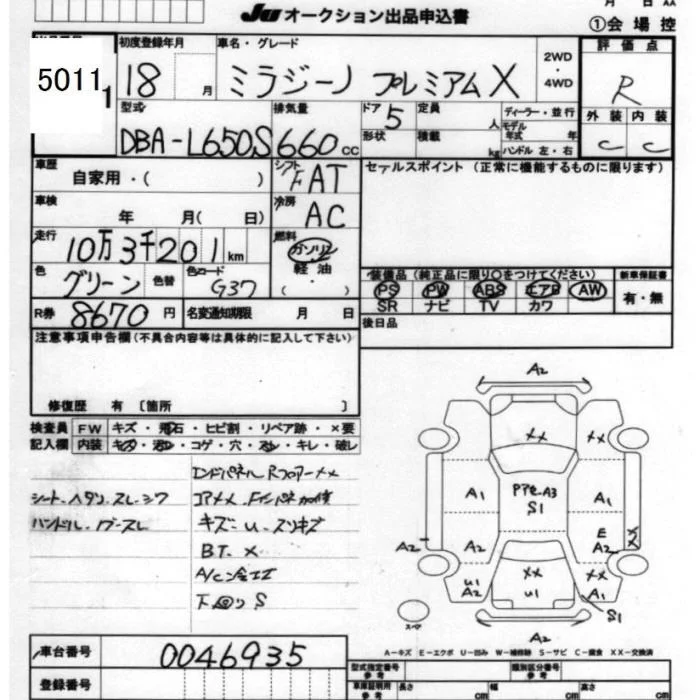 月 日 AA
JU オークション出品申込書
①会場控
5011
1
初度登録年月
18 月
車名・グレード
ミラジーノ プレミアムX
2WD
・
4WD
評価点
R
型式
DBA-L650S
排気量
660 cc
ドア
5
定員
人
形状
積載
kg
ディーラー・並行
モデル年式 年
ハンドル 左・右
外装 内装
C C
車歴
自家用・( )
シフト
FAT
セールスポイント (正常に機能するものに限ります)
車検
年 月( 日)
冷房
AC
走行
10万3千201km
燃料
ガソリン
軽油
( ・ )
色
グリーン
色替
色コード
G37
装備品(純正品に限り○をつけてください)
PS PW ABS エアB AW
SR ナビ TV カワ
新車保証書
有・無
R券
8670円
名変通知期限 月 日
後日品
注意事項申告欄(不具合内容等は具体的に記入して下さい)
修復歴 有 〔箇所 〕
検査員
記入欄
FW キズ・飛石・ヒビ割・リペア跡・×要
内装 キズ・汚レ・コゲ・穴・スレ・キレ・破レ
エンドパネル Rフロアーメメ
シート・ヘタリ・スレ・シワ
ハンドル・ スレ
キズ・U・スリキズ
BT・×
A/C
下回りS
A2
XX
XX
A1
Pアセ・A3
S1
A1
A2
A2
E
A2
XX
U1
A2
XX
U1
XX
A1
S1
A2
スペア
A-キズ E-エクボ U-凹み W-補修跡 S-サビ C-腐食 XX-交換済
車台番号
0046935
登録番号
型式指定番号
参考
類別区分番号
参考
車庫証明用
参考
長さ cm
幅 cm
高さ cm